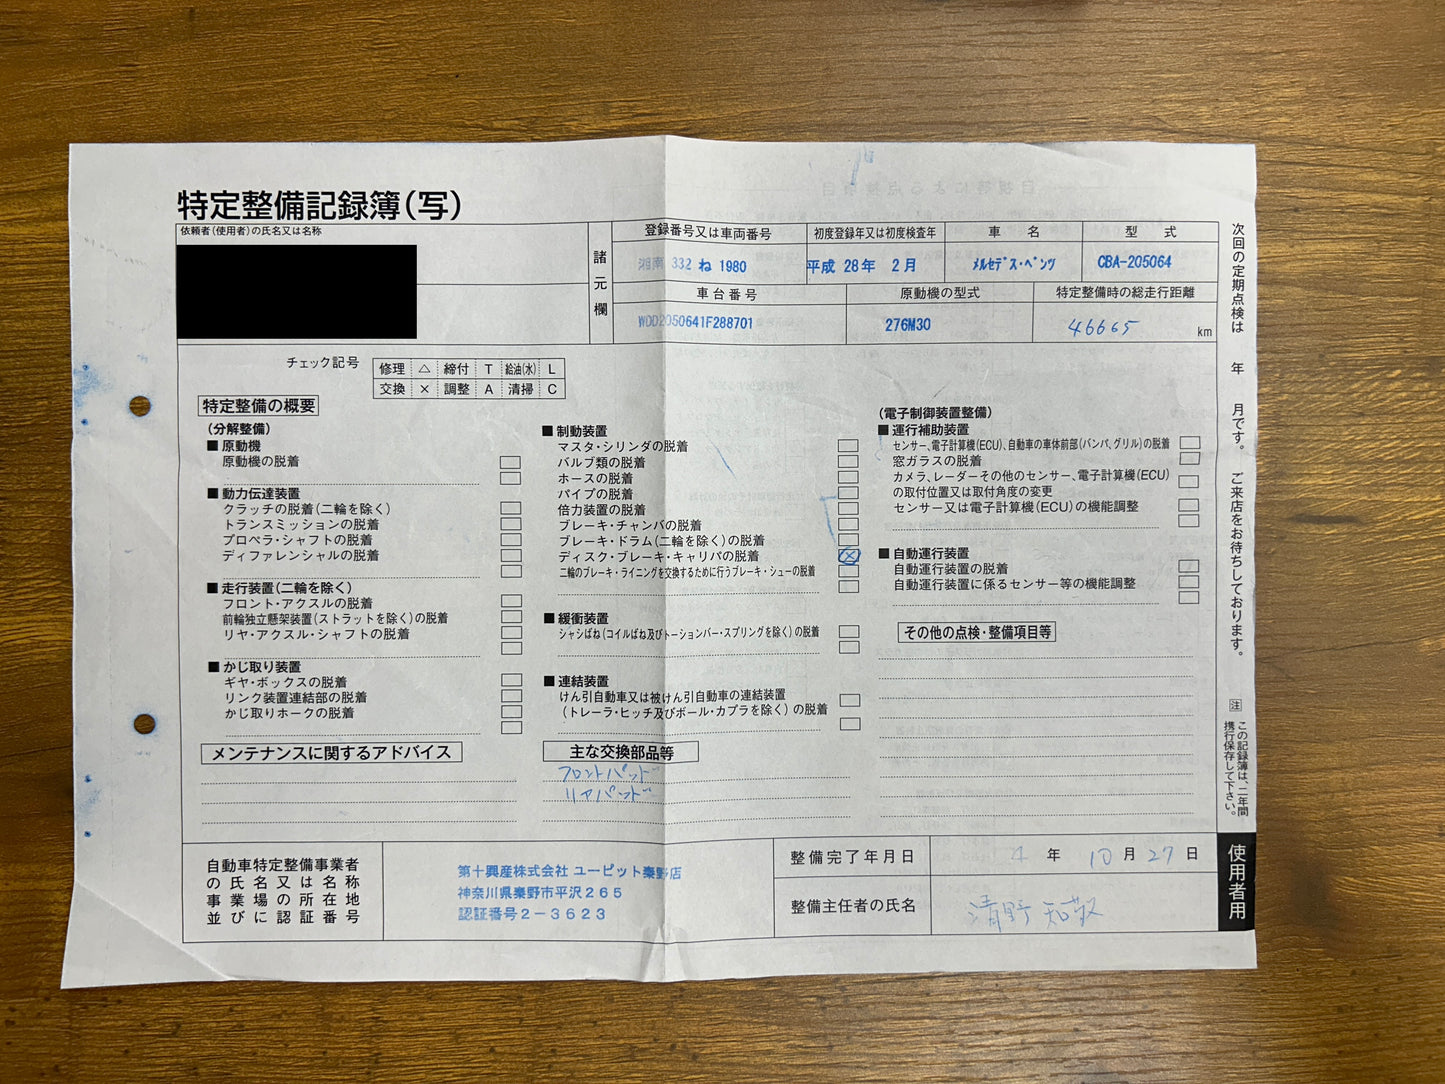 特定整備記録簿(写)
依頼者(使用者)の氏名又は名称
諸元欄
登録番号又は車両番号
初度登録年又は初度検査年
車名
型式
湘南 332 ね 1980
平成 28年 2月
メルセデス・ベンツ
CBA-205064
車台番号
原動機の型式
特定整備時の総走行距離
WDD2050641F288701
276M30
46665 km
チェック記号
修理 △ 締付 T 給油(水) L
交換 × 調整 A 清掃 C
特定整備の概要
(分解整備)
■ 原動機
原動機の脱着
■ 動力伝達装置
クラッチの脱着(二輪を除く)
トランスミッションの脱着
プロペラ・シャフトの脱着
ディファレンシャルの脱着
■ 走行装置(二輪を除く)
フロント・アクスルの脱着
前輪独立懸架装置(ストラットを除く)の脱着
リヤ・アクスル・シャフトの脱着
■ かじ取り装置
ギヤ・ボックスの脱着
リンク装置連結部の脱着
かじ取りホークの脱着
メンテナンスに関するアドバイス
■ 制動装置
マスタ・シリンダの脱着
バルブ類の脱着
ホースの脱着
パイプの脱着
倍力装置の脱着
ブレーキ・チャンバの脱着
ブレーキ・ドラム(二輪を除く)の脱着
ディスク・ブレーキ・キャリパの脱着 ×
二輪のブレーキ・ライニングを交換するために行うブレーキ・シューの脱着
■ 緩衝装置
シャシばね(コイルばね及びトーションバー・スプリングを除く)の脱着
■ 連結装置
けん引自動車又は被けん引自動車の連結装置
(トレーラ・ヒッチ及びボール・カプラを除く)の脱着
主な交換部品等
フロントパッド
リアパッド
(電子制御装置整備)
■ 運行補助装置
センサー、電子計算機(ECU)、自動車の車体前部(バンパ、グリル)の脱着
窓ガラスの脱着
カメラ、レーダーその他のセンサー、電子計算機(ECU)
の取付位置又は取付角度の変更
センサー又は電子計算機(ECU)の機能調整
■ 自動運行装置
自動運行装置の脱着
自動運行装置に係るセンサー等の機能調整
その他の点検・整備項目等
自動車特定整備事業者
の氏名又は名称
事業場の所在地
並びに認証番号
第十興産株式会社 ユーピット秦野店
神奈川県秦野市平沢265
認証番号2-3623
整備完了年月日
4 年 10 月 27 日
整備主任者の氏名
清野 知敬
次回の定期点検は 年 月です。 ご来店をお待ちしております。
注 この記録簿は、二年間
携行保存して下さい。
使用者用